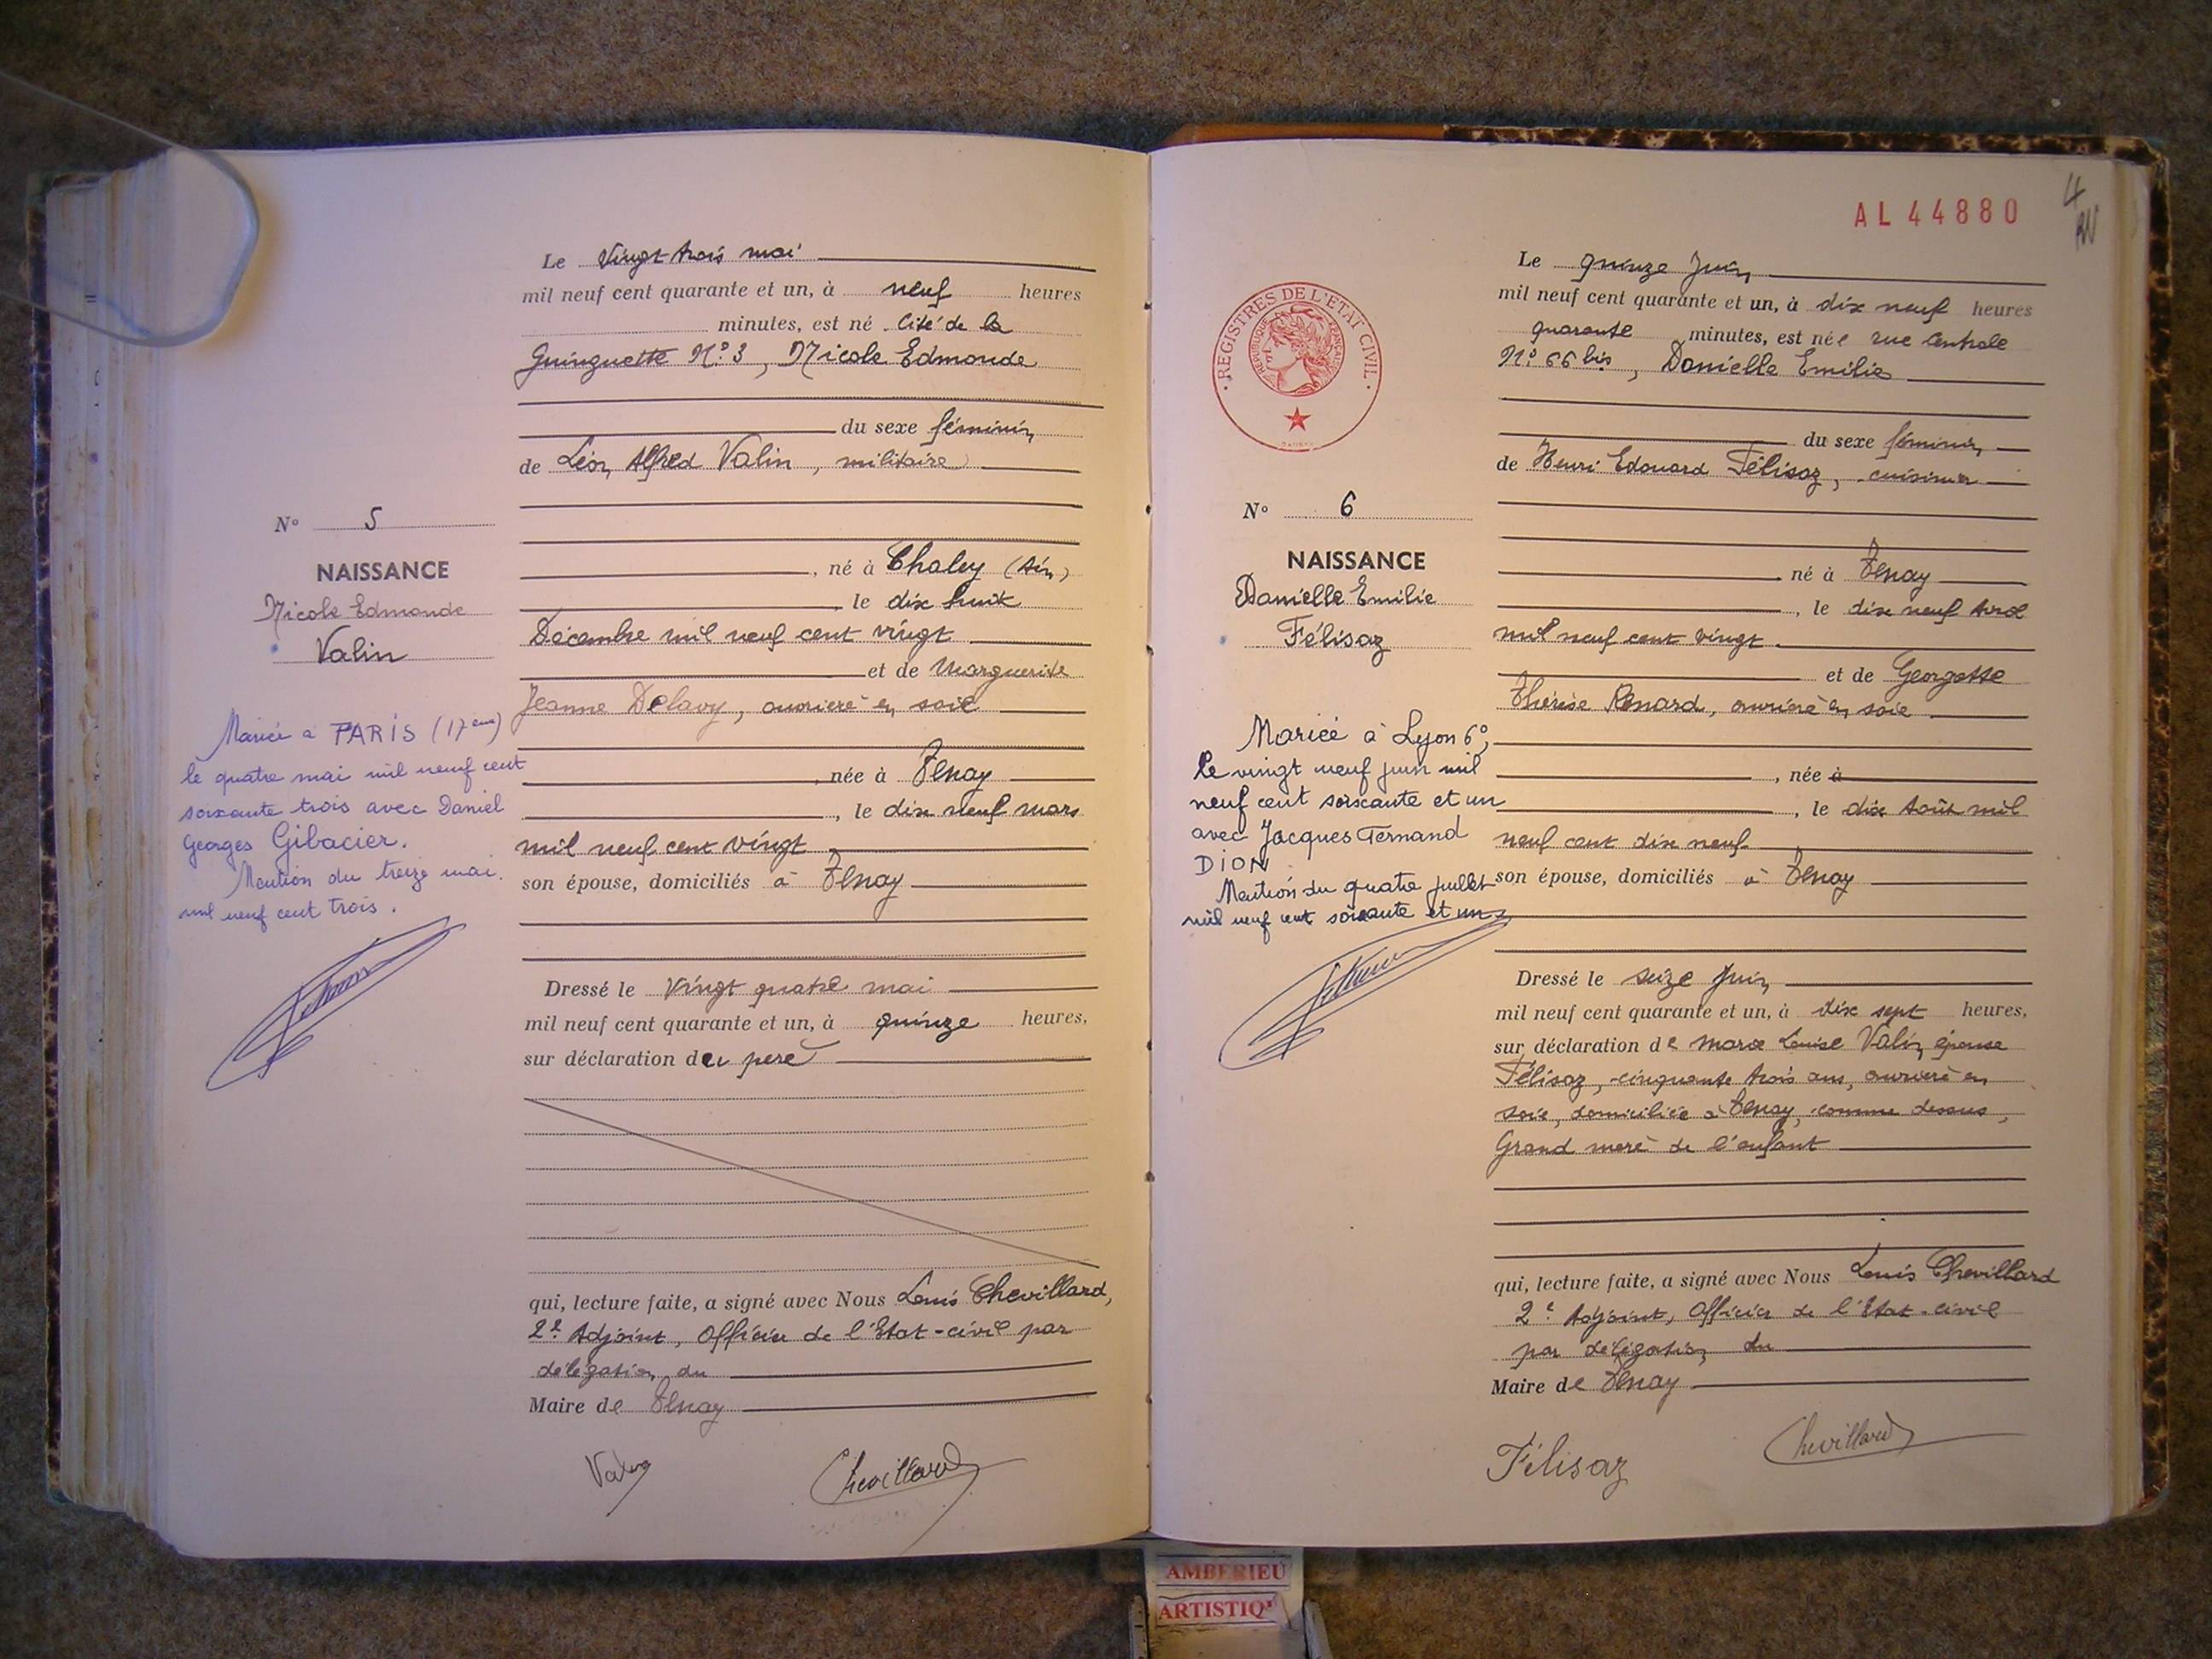 Le Vingt trois mai
mil neuf cent quarante et un, à neuf heures
minutes, est né Cité de la
Guinguette N.° 3, Nicole Edmonde
du sexe féminin
de Léon Alfred Valin, militaire
N° 5
, né à Chaley (Ain)
NAISSANCE
, le dix huit
Nicole Edmonde
Valin
Décembre mil neuf cent vingt
et de Marguerite
Jeanne Delavoy, ouvrière en soie
Mariée à PARIS (17ème)
le quatre mai mil neuf cent
soixante trois avec Daniel
Georges Gibacier.
Mention du treize mai
mil neuf cent trois.
, née à Tenay
, le dix neuf mars
mil neuf cent vingt
son épouse, domiciliés à Tenay
Dressé le Vingt quatre mai
mil neuf cent quarante et un, à quinze heures,
sur déclaration du père
qui, lecture faite, a signé avec Nous Louis Chevillard,
2e Adjoint, Officier de l'Etat-civil par
délégation du
Maire de Tenay
Chevillard
AL 44880
4
Le quinze Juin
mil neuf cent quarante et un, à dix neuf heures
quarante minutes, est née rue Centrale
N° 66 bis, Danielle Emilie
REGISTRES DE L'ETAT CIVIL
REPUBLIQUE FRANÇAISE
du sexe féminin
de Henri Edouard Félisaz, cuisinier
N° 6
NAISSANCE
Danielle Emilie
Félisaz
né à Tenay
, le dix neuf Avril
mil neuf cent vingt
et de Georgette
Thérèse Renard, ouvrière en soie
Mariée à Lyon 6°,
le vingt neuf juin mil
neuf cent soixante et un
avec Jacques Fernand
DION
Mention du quatre juillet
mil neuf cent soixante et un
, née à
, le dix Août mil
neuf cent dix neuf
son épouse, domiciliés à Tenay
Dressé le seize Juin
mil neuf cent quarante et un, à dix sept heures,
sur déclaration de Marie Louise Valin épouse
Félisaz, cinquante trois ans, ouvrière en
soie, domiciliée à Tenay, comme dessus,
Grand mère de l'enfant
qui, lecture faite, a signé avec Nous Louis Chevillard
2e Adjoint, Officier de l'Etat-civil
par délégation du
Maire de Tenay
Félisaz
Chevillard
AMBERIEU
ARTISTIQ